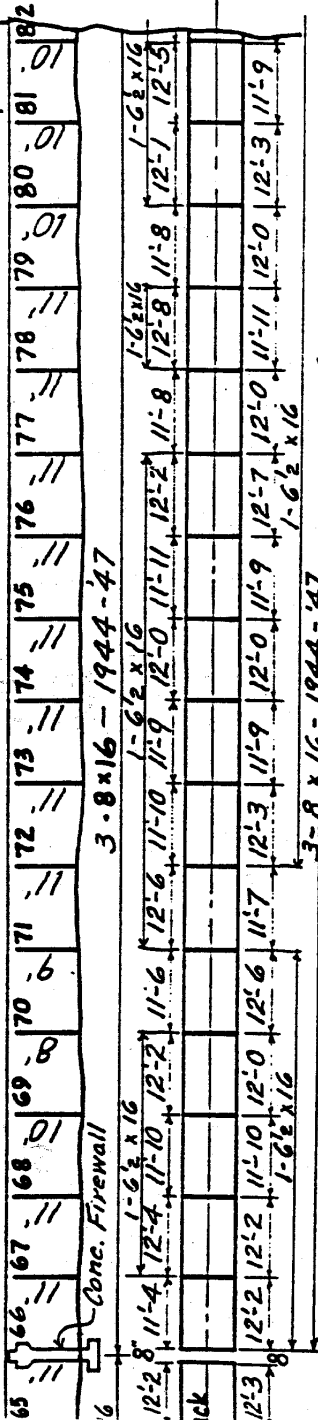 65 66 67 68 69 70 71 72 73 74 75 76 77 78 79 80 81 82
11' 11' 11' 10' 8' 9' 11' 11' 11' 11' 11' 11' 11' 10' 10' 10'
Conc. Firewall
16 3-8x16 - 1944-'47
1-6½ x 16 1-6½ x 16 1-6½x16 1-6½x16
12'-2 8" 11'-4 12'-4 11'-10 12'-2 11'-6 12'-6 11'-10 11'-9 12'-0 11'-11 12'-2 11'-8 12'-8 11'-8 12'-1 12'-5
ck
12'-3 8" 12'-2 12'-2 11'-10 12'-0 12'-6 11'-7 12'-3 11'-9 12'-0 11'-9 12'-7 12'-0 11'-11 12'-0 12'-3 11'-9
1-6½ x 16 1-6½ x 16
3-8 x 16 - 1944-'47